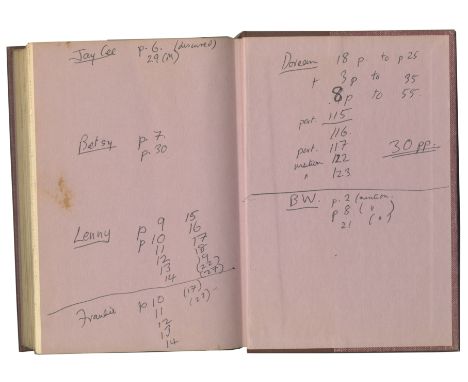 Jay Cee p. 6. (discussed)
29 (M)
Betsy p 7.
p. 30
Lenny p 9 15
p 10 16
11 17
12 18
13 19
14 (22)
(27)
Frankie p 10 (17)
11 (27)
12
13
14
Doreen 18 p to p 25
+ 3 p to 35
8 p to 55.
part. 115
116.
part. 117
mention 122
" 123
30 pp.
BW. p. 2 (mention.
p 8 ( " )
21 ( " )